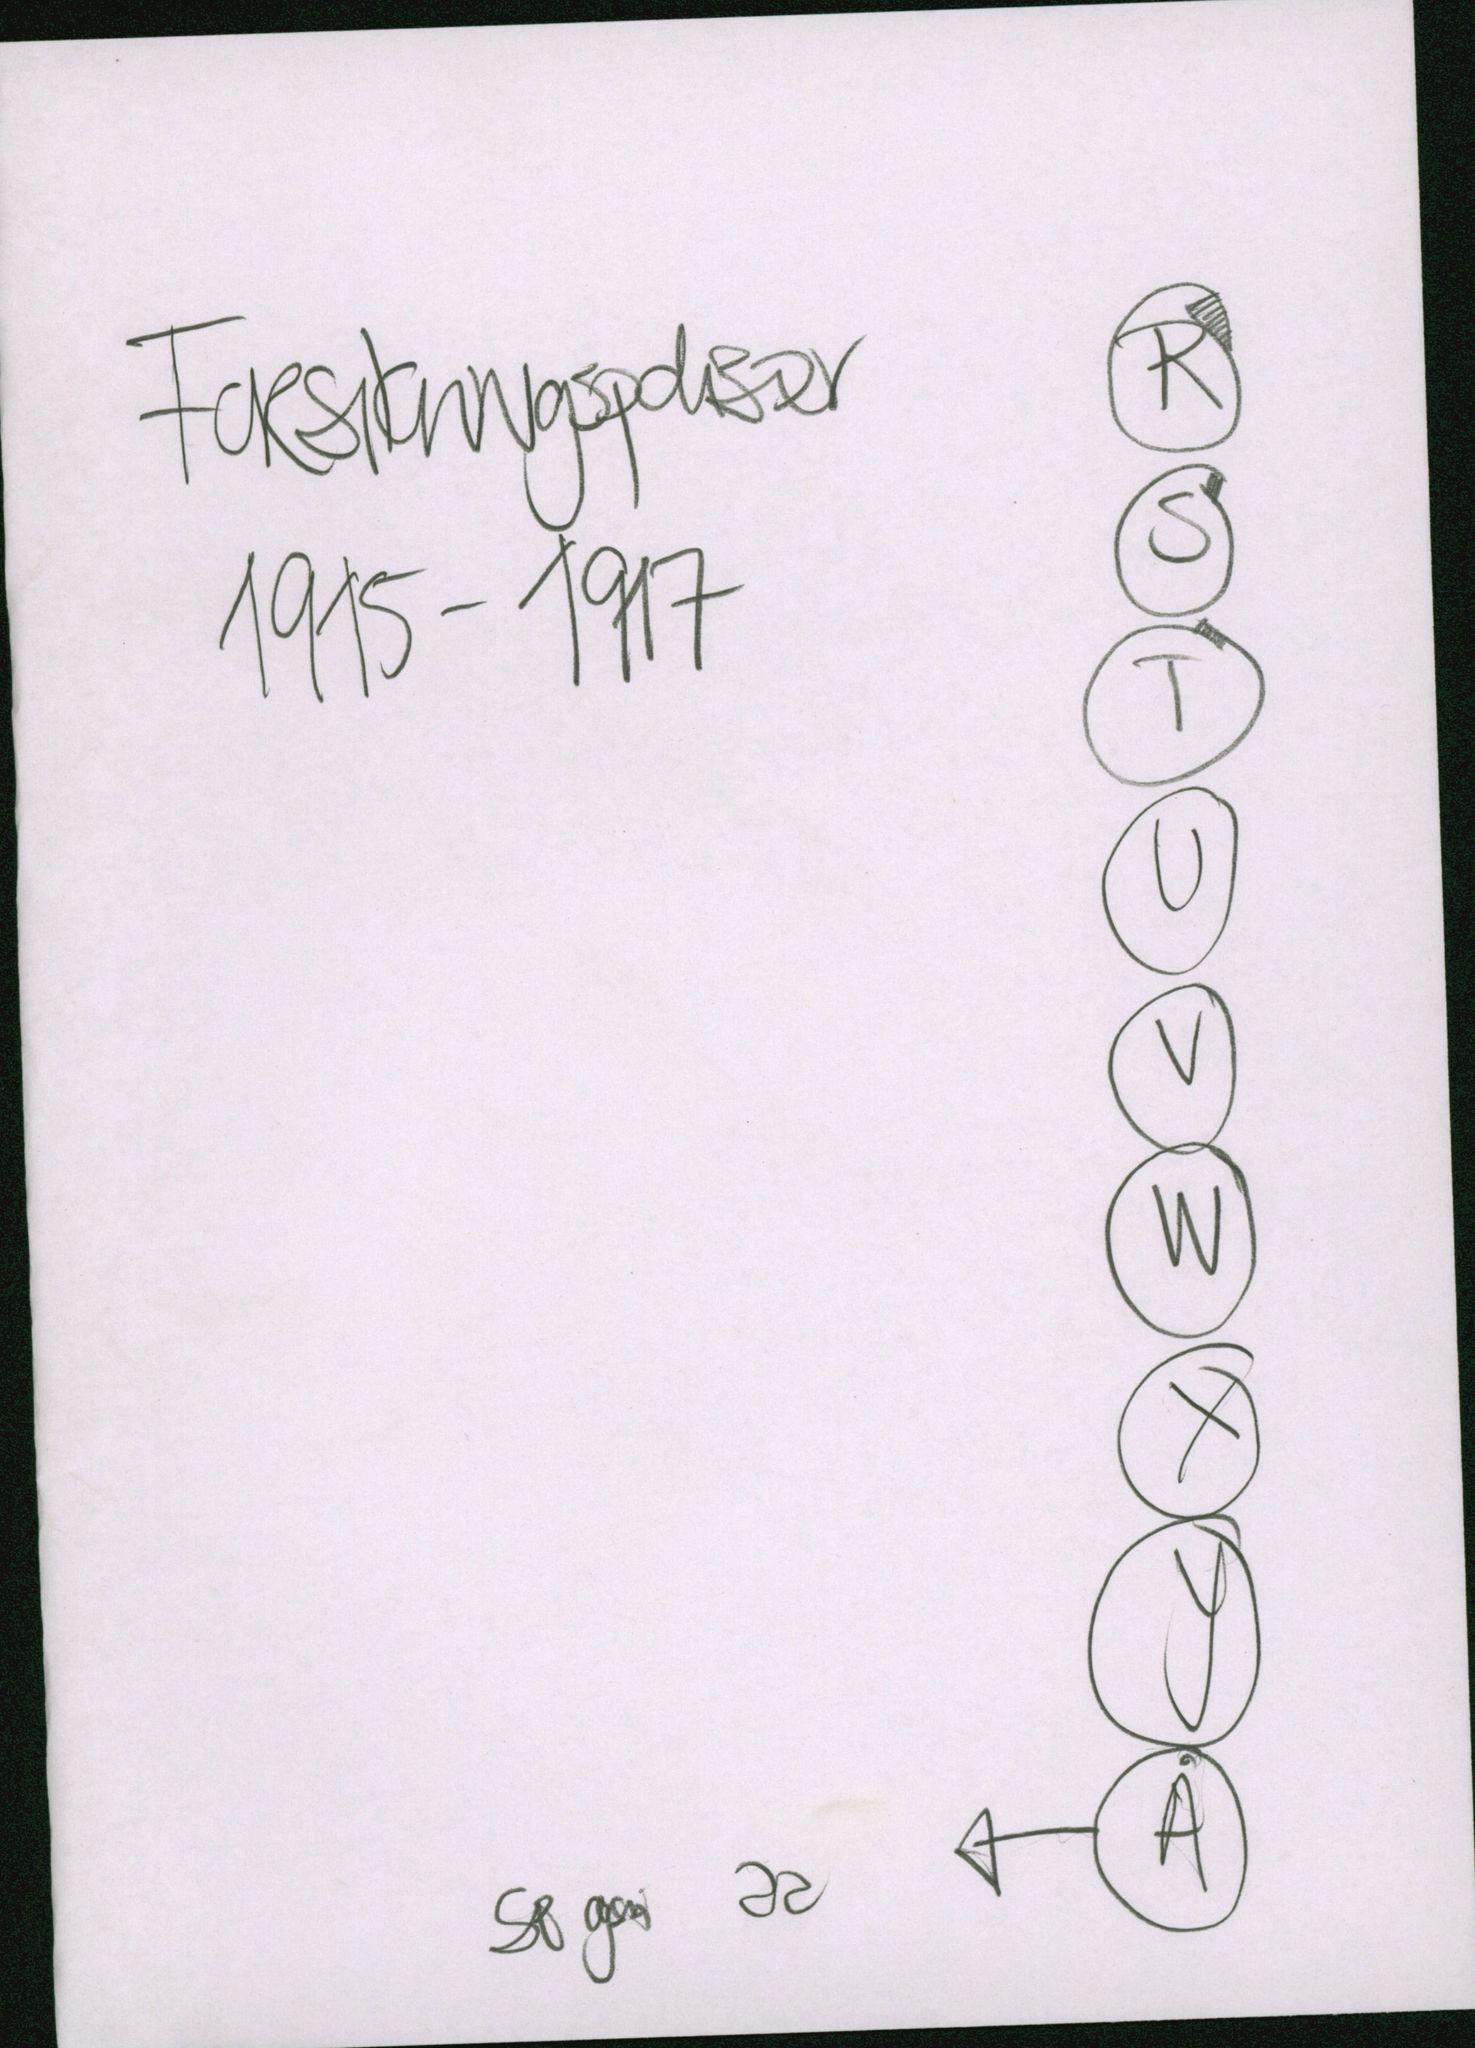 Forsikringspoliser
1915-1917
R
S
T
U
V
W
X
Y
Å